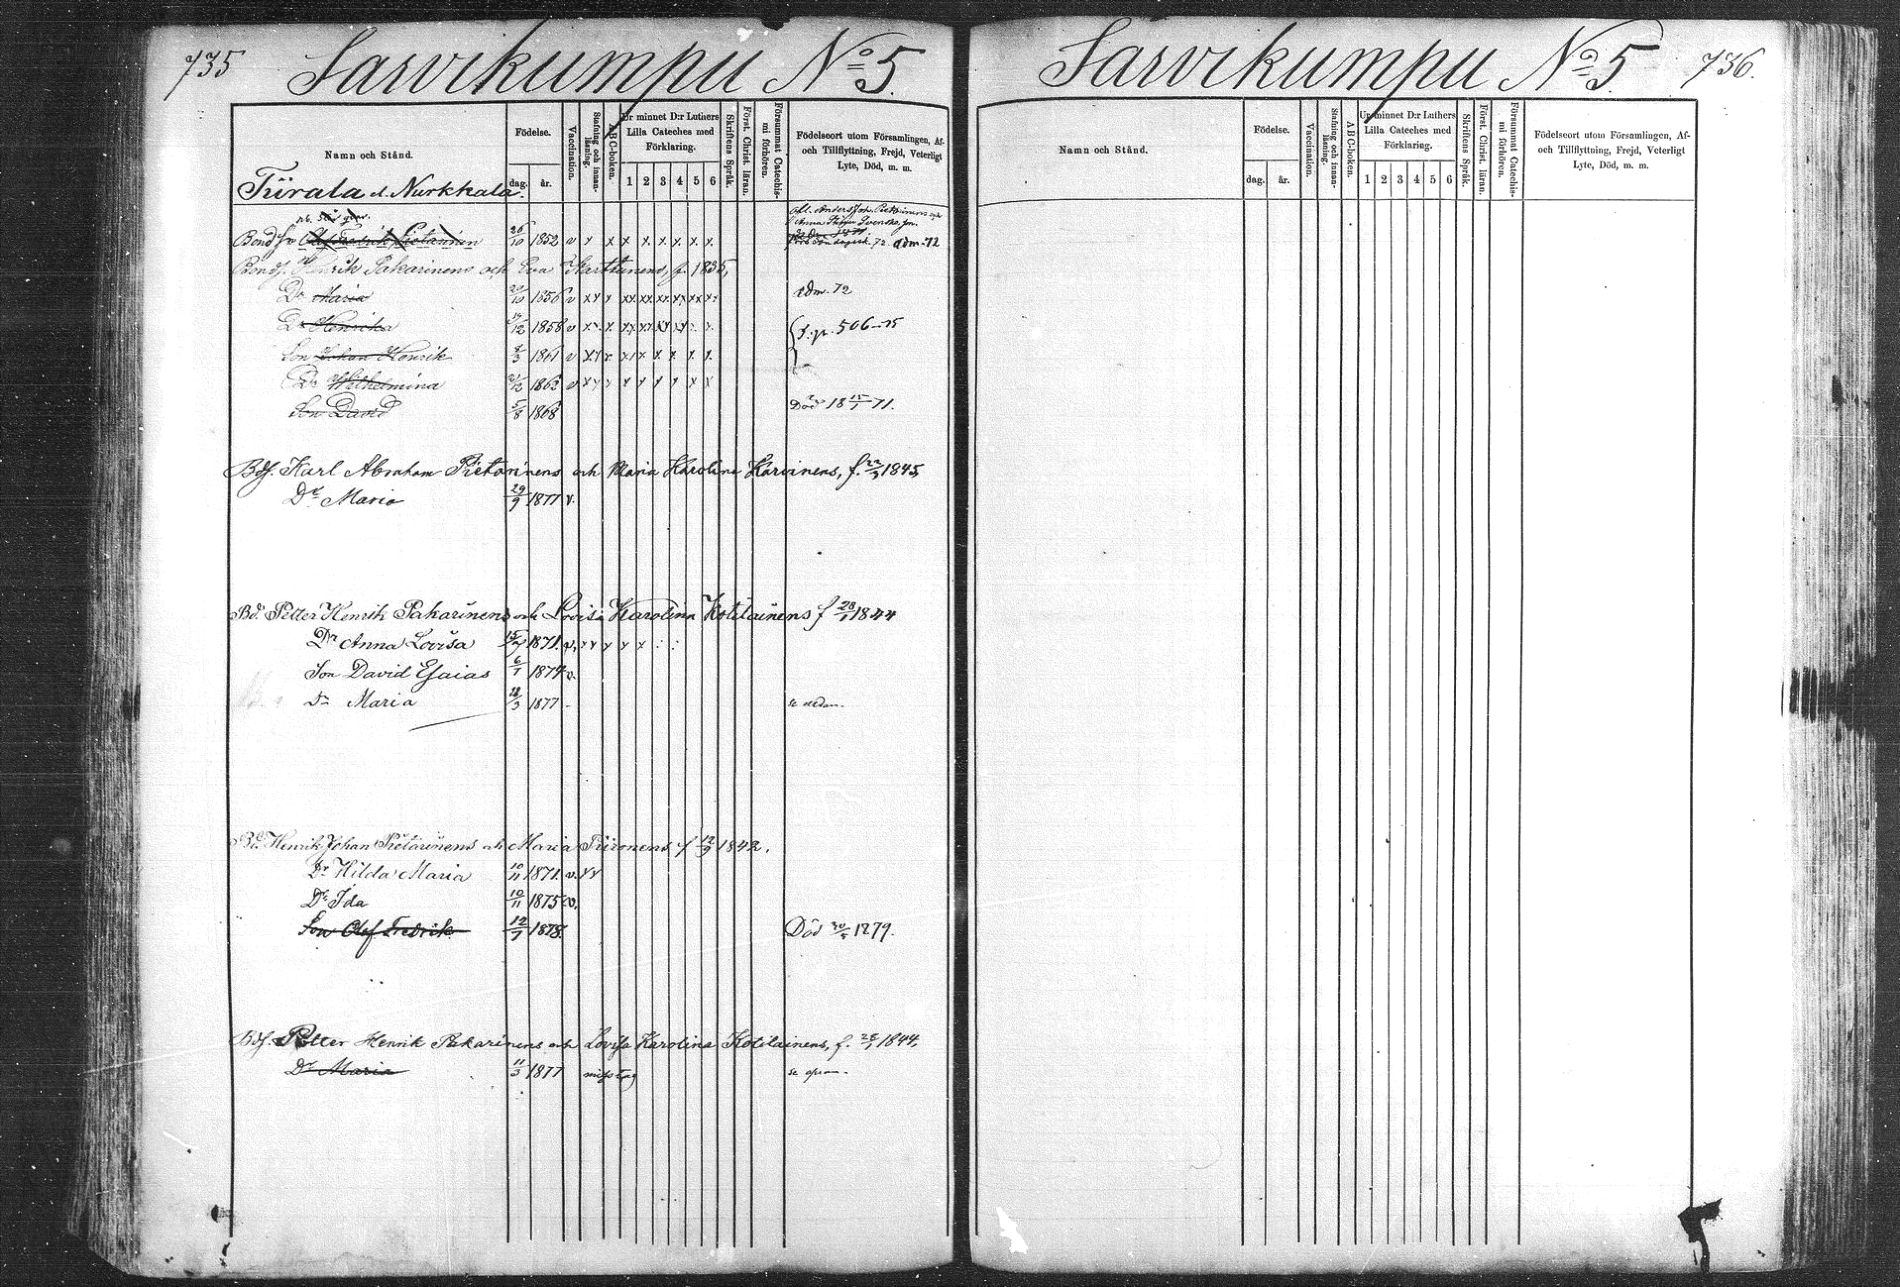 735 Sarvikumpu No 5.
Namn och Stånd.
Födelse.
dag. år.
Vaccination.
Stafning och innan-läsning.
A B C-boken.
Ur minnet D:r Luthers
Lilla Cateches med
Förklaring.
1 2 3 4 5 6
Skriftens Språk.
Först. Christ. läran.
Försummat Catechis-
mi förhören.
Födelseort utom Församlingen, Af-
och Tillflyttning, Frejd, Veterligt
Lyte, Död, m. m.
Tiirala el. Nurkkala.
Olof Fredrik Pietarinen 26/10 1852 v x x x x x x x x x adm. 72
Bondf. Henrik Pakarinens och Eva Karttunens, f. 1835,
Dr Maria 1856 v adm. 72
Dr Henrika 1858 v 506-75
Son Johan Henrik 1861 v
Dr Wilhelmina 1862 v
Son David 5/8 1868 Död 18 15/1 71.
Bdf. Karl Abraham Pietarinens och Maria Karolina Karvinens, f. 1845,
Dr Maria 29/9 1877 v.
Bd. Petter Henrik Pakarinens och Lovisa Karolina Kotilainens f 28/1 1844
Dr Anna Lovisa 1871. v, x x x x x
Son David Esaias 6/1 1874 v.
Dr Maria 1877 - se nedan.
Bd. Henrik Johan Pietarinens och Maria Tiironens f 12/9 1842.
Dr Hilda Maria 10/11 1871. v. x x
Dr Ida 10/11 1875 v,
Son Olof Fredrik 12/7 1878. Död 30/5 1879.
Bdf. Petter Henrik Pakarinens och Lovisa Karolina Kotilainens, f. 28/1 1844,
Dr Maria 11/3 1877 misstag se ofvan.
Sarvikumpu No 5 736.
Namn och Stånd.
Födelse.
dag. år.
Vaccination.
Stafning och innan-läsning.
A B C-boken.
Ur minnet D:r Luthers
Lilla Cateches med
Förklaring.
1 2 3 4 5 6
Skriftens Språk.
Först. Christ. läran.
Försummat Catechis-
mi förhören.
Födelseort utom Församlingen, Af-
och Tillflyttning, Frejd, Veterligt
Lyte, Död, m. m.